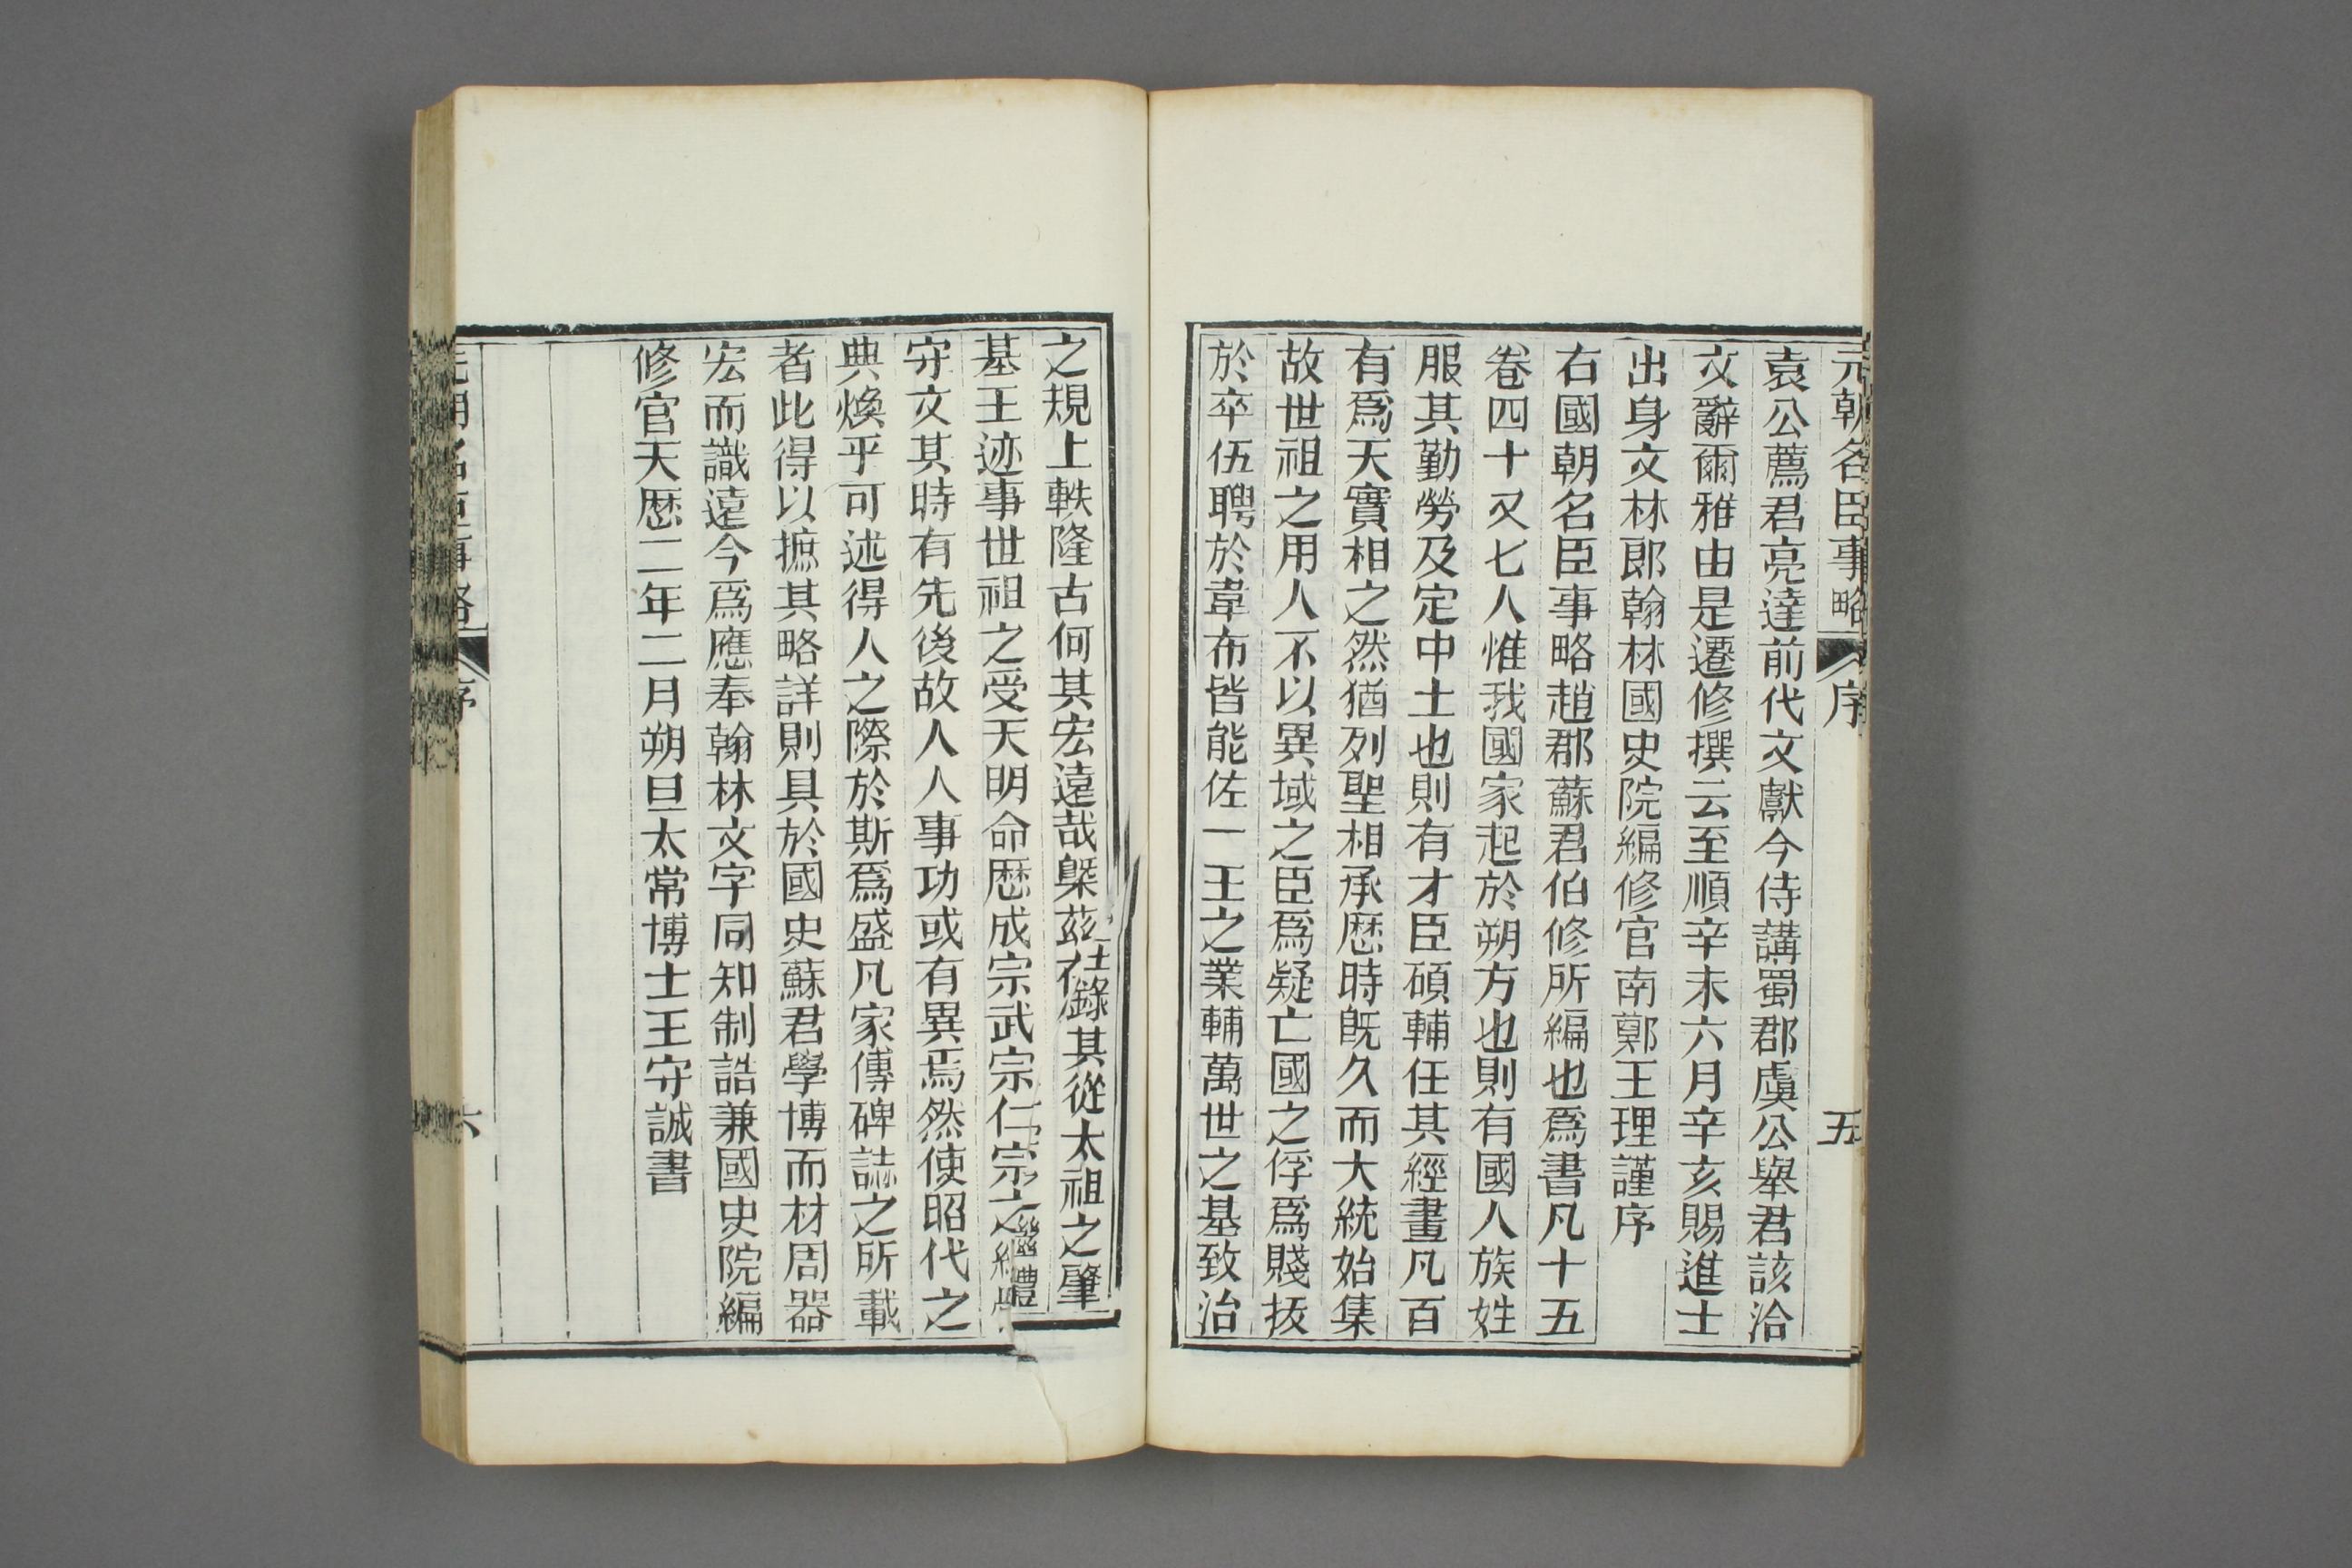 元朝名臣事略 序 五
袁公薦君亮達前代文獻今侍講蜀郡虞公舉君該洽
文辭爾雅由是遷修撰云至順辛未六月辛亥賜進士
出身文林郎翰林國史院編修官南鄭王理謹序
右國朝名臣事略趙郡蘇君伯修所編也爲書凡十五
卷四十又七人惟我國家起於朔方也則有國人族姓
服其勤勞及定中土也則有才臣碩輔任其經畫凡百
有爲天實相之然猶列聖相承歷時旣久而大統始集
故世祖之用人不以異域之臣爲疑亡國之俘爲賤拔
於卒伍聘於韋布皆能佐一王之業輔萬世之基致治
之規上軼隆古何其宏遠哉槩茲在錄其從太祖之肇
基王迹事世祖之受天明命歷成宗武宗仁宗之繼體
守文其時有先後故人人事功或有異焉然使昭代之
典煥乎可述得人之際於斯爲盛凡家傳碑誌之所載
者此得以摭其略詳則具於國史蘇君學博而材周器
宏而識遠今爲應奉翰林文字同知制誥兼國史院編
修官天歷二年二月朔旦太常博士王守誠書
元朝名臣事略 序 六